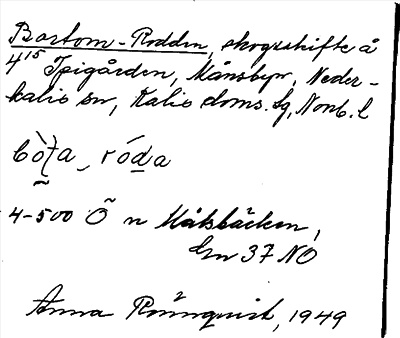 Bortom-Rodden, skogsskifte å
4¹⁵ Spigården, Månsbyn, Neder-
kalix sn, Kalix doms. lg, Norrb. l
4-500 Ö n Målsbäcken,
Gn 37 NO
Anna Rönnqvist, 1949